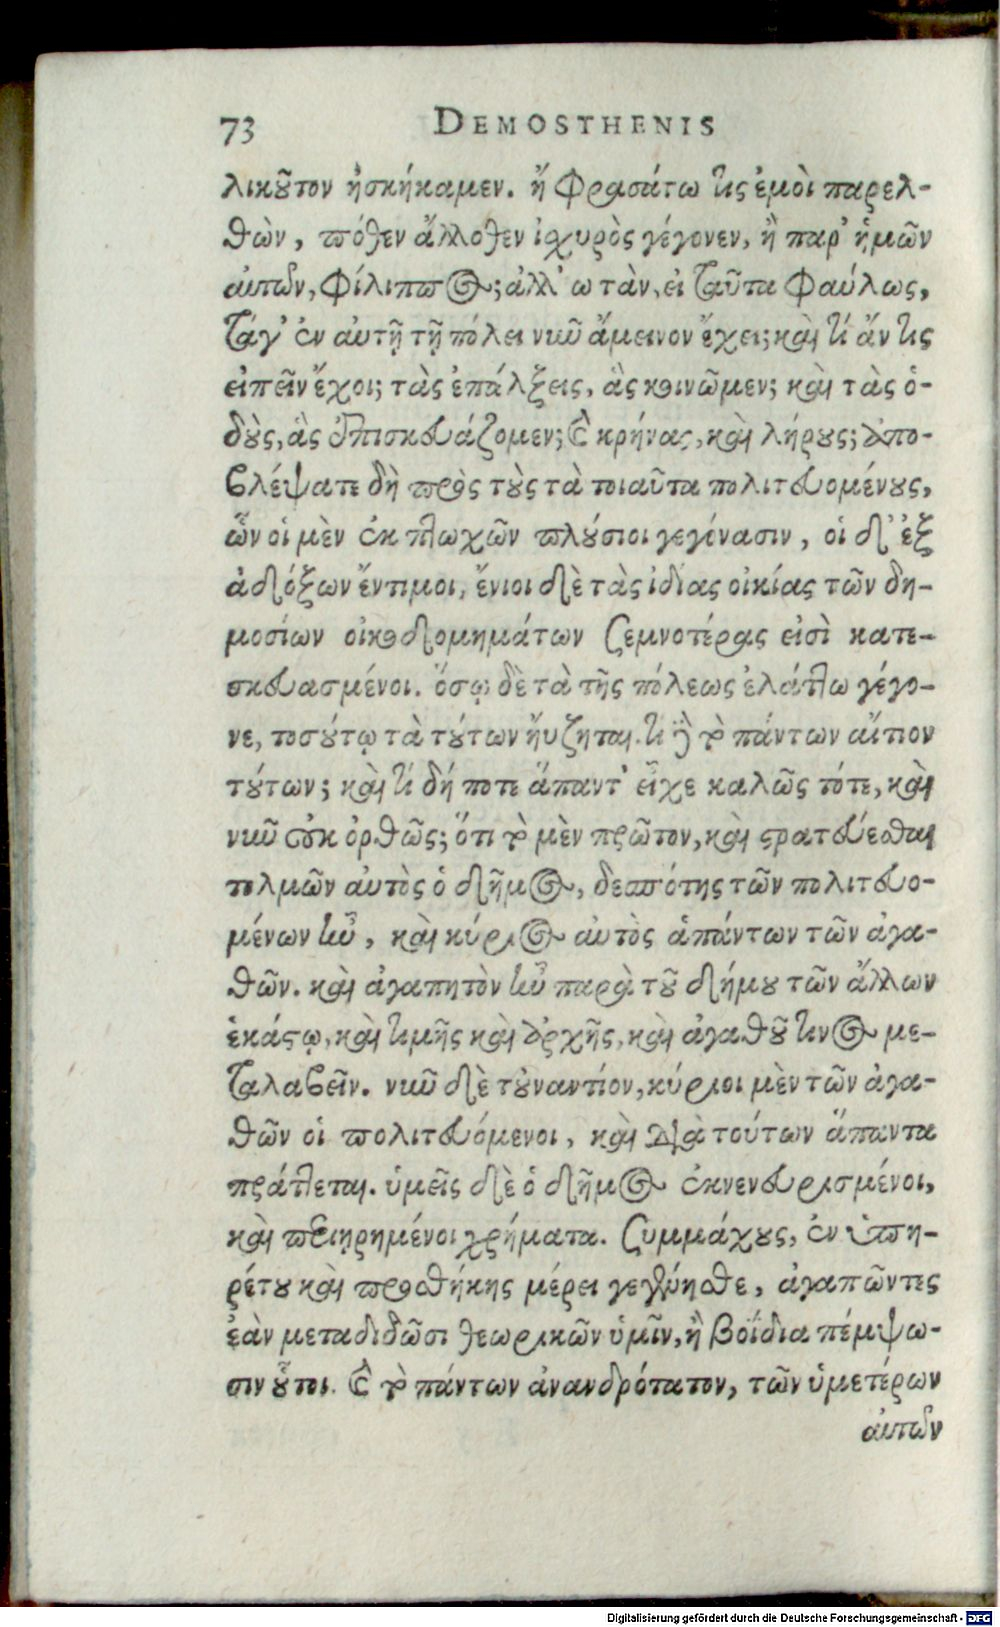 73 DEMOSTHENIS
λικοῦτον ἠσκήκαμεν. ἢ φρασάτω τὶς ἐμοὶ παρελ-
θὼν, πόθεν ἄλλοθεν ἰσχυρὸς γέγονεν, ἢ παρ' ἡμῶν
αὐτῶν, Φίλιππος; ἀλλ' ὦ τὰν, εἰ ταῦτα φαύλως,
τάγ' ἐν αὐτῇ τῇ πόλει νῦν ἄμεινον ἔχει; καὶ τί ἄν τις
εἰπεῖν ἔχοι; τὰς ἐπάλξεις, ἃς κονιῶμεν; καὶ τὰς ὁ-
δοὺς, ἃς ἐπισκευάζομεν; καὶ κρήνας, καὶ λήρους; ἀπο-
βλέψατε δὴ πρὸς τοὺς τὰ τοιαῦτα πολιτευομένους,
ὧν οἱ μὲν ἐκ πτωχῶν πλούσιοι γεγόνασιν, οἱ δ' ἐξ
ἀδόξων ἔντιμοι, ἔνιοι δὲ τὰς ἰδίας οἰκίας τῶν δη-
μοσίων οἰκοδομημάτων σεμνοτέρας εἰσὶ κατε-
σκευασμένοι. ὅσῳ δὲ τὰ τῆς πόλεως ἐλάττω γέγο-
νε, τοσούτῳ τὰ τούτων ηὔξηται. τί δὴ τὸ πάντων αἴτιον
τούτων; καὶ τί δή ποτε ἅπαντ' εἶχε καλῶς τότε, καὶ
νῦν οὐκ ὀρθῶς; ὅτι τὸ μὲν πρῶτον, καὶ στρατεύεσθαι
τολμῶν αὐτὸς ὁ δῆμος, δεσπότης τῶν πολιτευο-
μένων ἦν, καὶ κύριος αὐτὸς ἁπάντων τῶν ἀγα-
θῶν. καὶ ἀγαπητὸν ἦν παρὰ τοῦ δήμου τῶν ἄλλων
ἑκάστῳ, καὶ τιμῆς καὶ ἀρχῆς, καὶ ἀγαθοῦ τινος με-
ταλαβεῖν. νῦν δὲ τοὐναντίον, κύριοι μὲν τῶν ἀγα-
θῶν οἱ πολιτευόμενοι, καὶ διὰ τούτων ἅπαντα
πράττεται. ὑμεῖς δὲ ὁ δῆμος ἐκνενευρισμένοι,
καὶ περιῃρημένοι χρήματα. συμμάχους, ἐν ὑπη-
ρέτου καὶ προσθήκης μέρει γεγένησθε, ἀγαπῶντες
ἐὰν μεταδιδῶσι θεωρικῶν ὑμῖν, ἢ βοΐδια πέμψω-
σιν οὗτοι. καὶ τὸ πάντων ἀνανδρότατον, τῶν ὑμετέρων
αὐτῶν
Digitalisierung gefördert durch die Deutsche Forschungsgemeinschaft - DFG